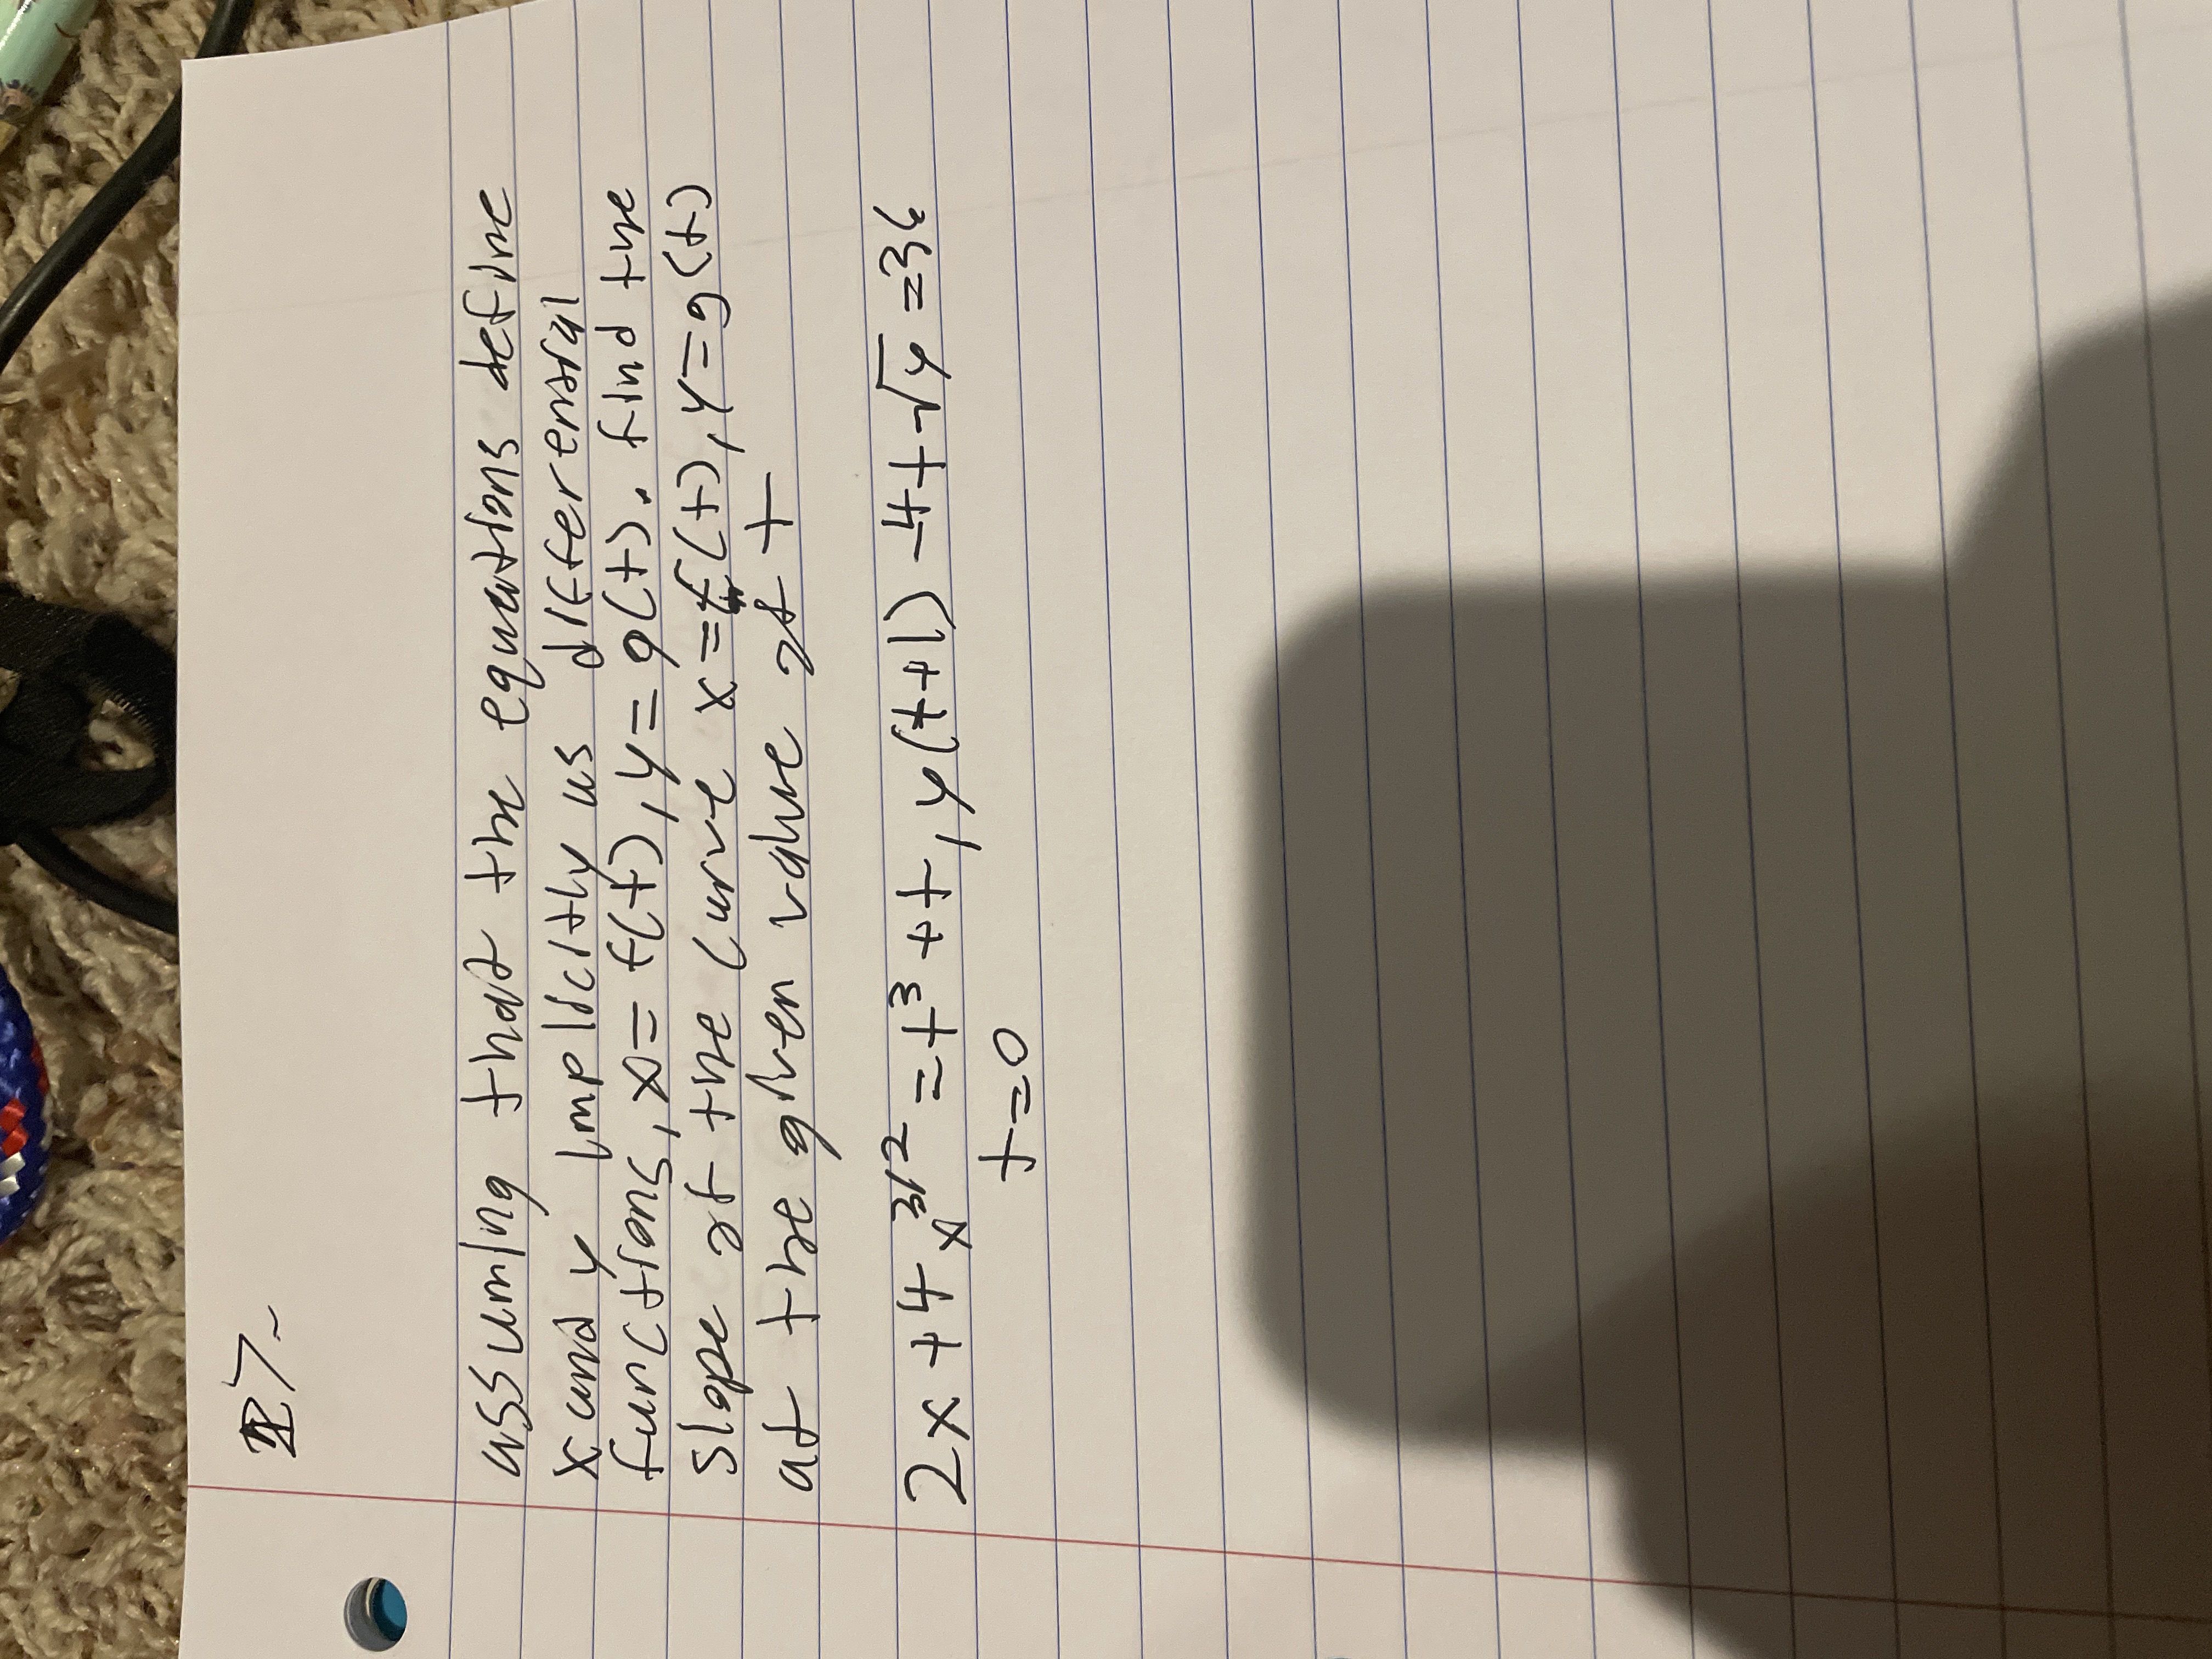 7.
assuming that the equations define
x and y implicitly as differential
functions, x = f(t), y = g(t). find the
slope of the curve x = f(t), y = g(t)
at the given value of t
2x + 4x^3/2 = t^3 + t, y(t+1) - 4t√y = 36
t=0